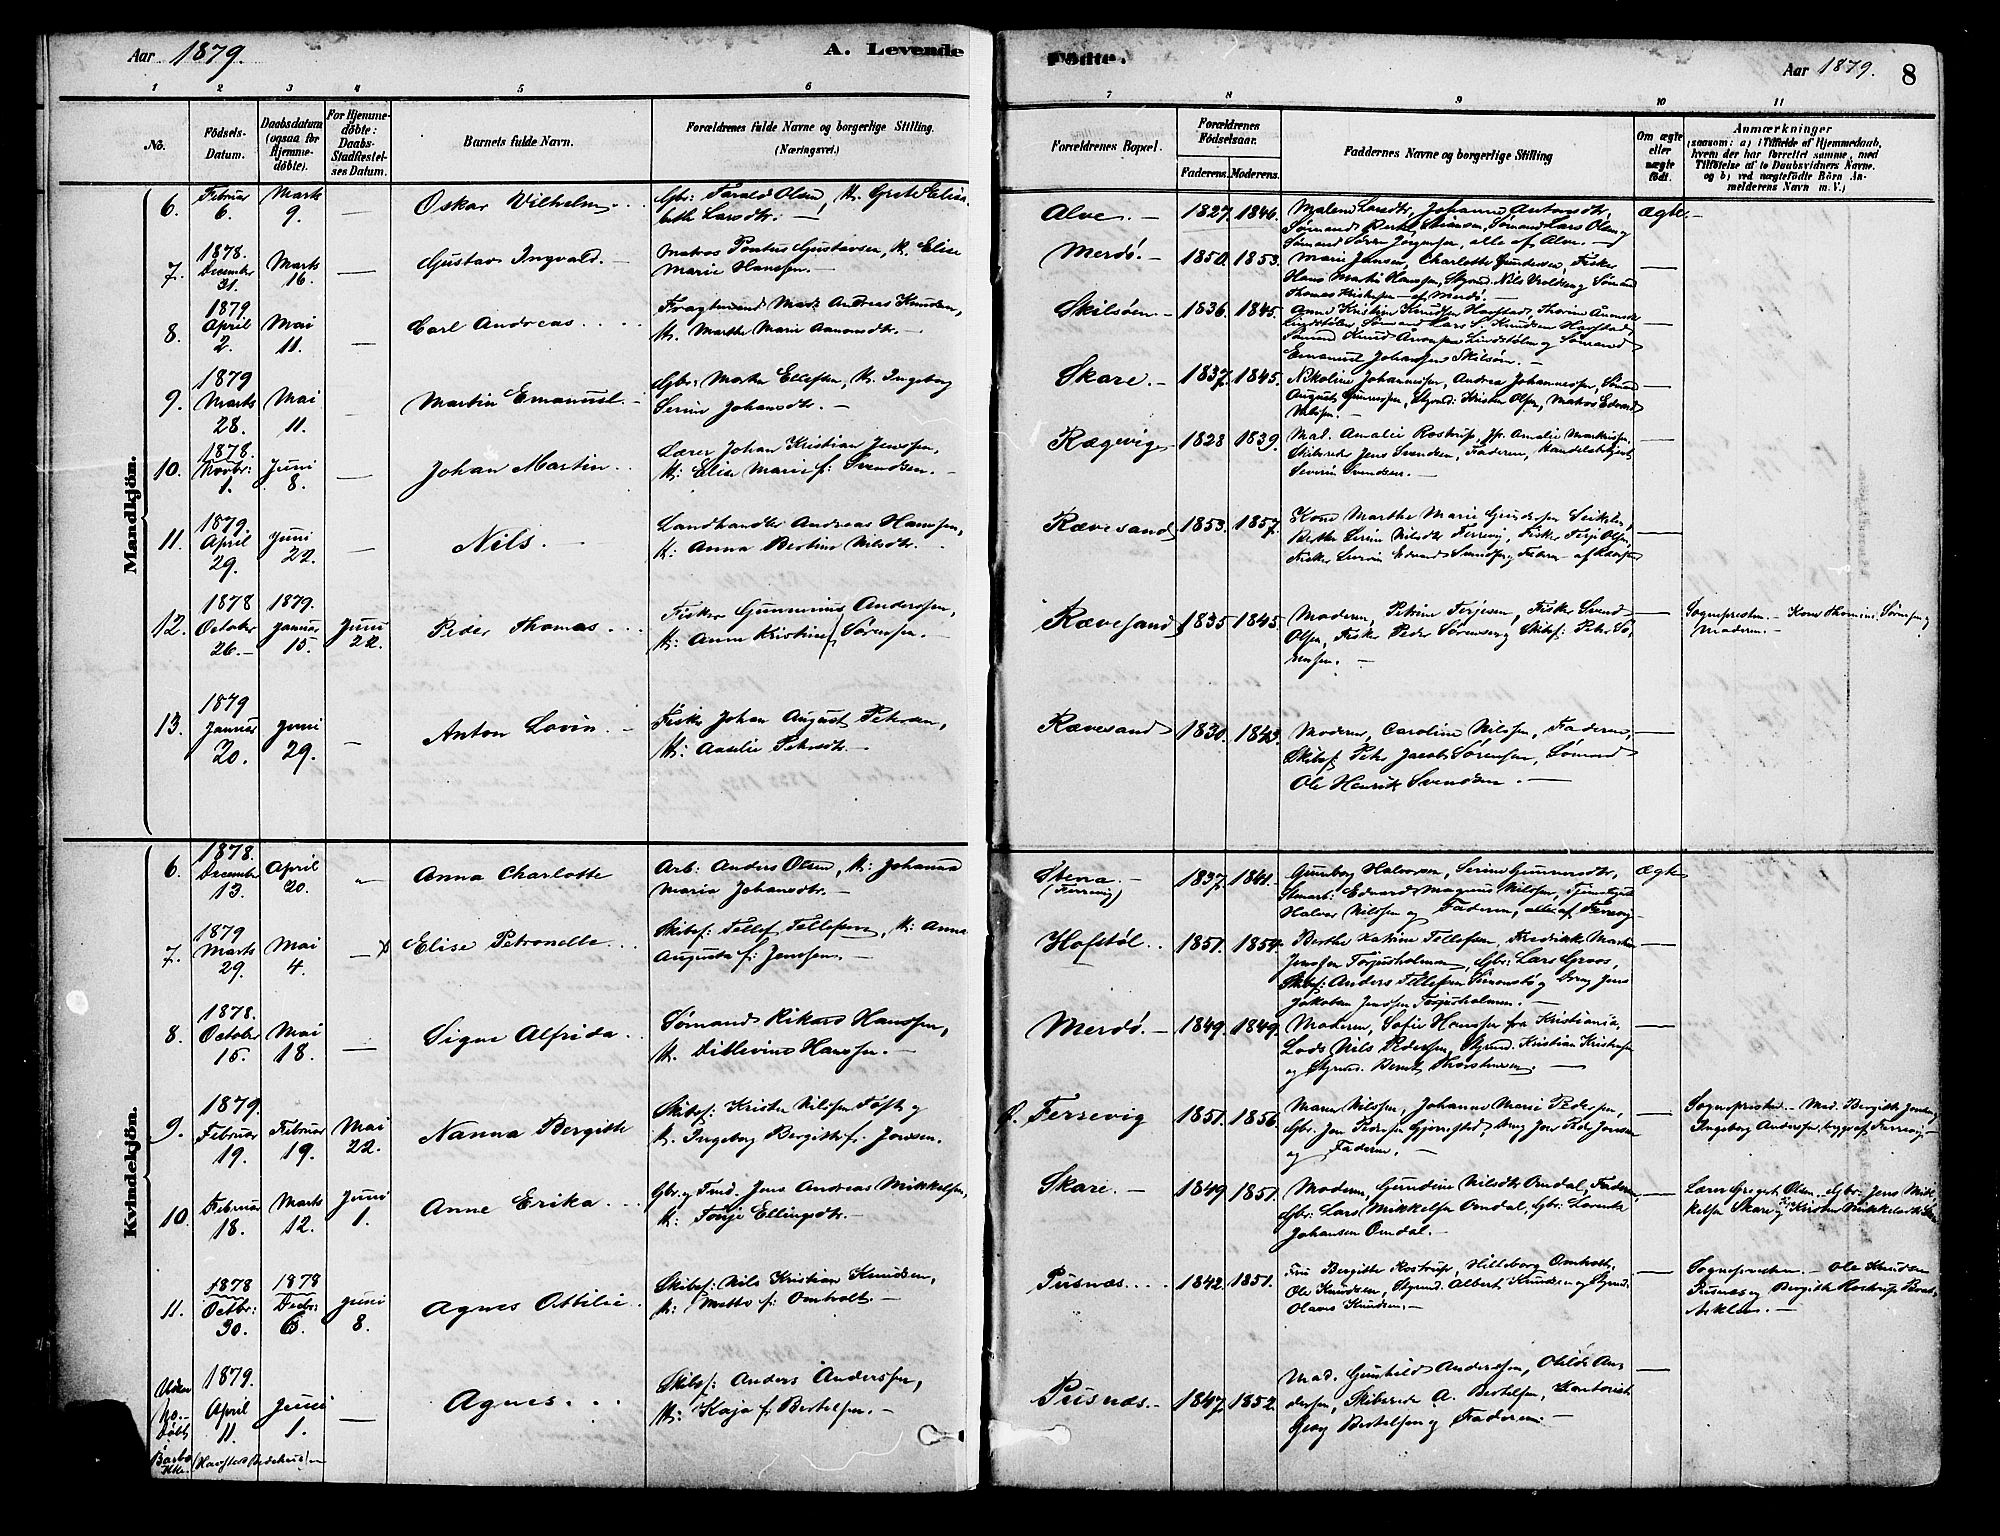 Aar 1879.
A. Levende
Fødte.
Aar 1879.
8
1 2 3 4 5 6 7 8 9 10 11
No.
Födsels-Datum.
Daabsdatum (ogsaa for Hjemmedöbte).
For Hjemmedöbte: Daabs-Stadfestelses Datum.
Barnets fulde Navn.
Forældrenes fulde Navne og borgerlige Stilling.
(Næringsvei.)
Forældrenes Bopæl.
Forældrenes Födselsaar.
Faderens. Moderens.
Faddernes Navne og borgerlige Stilling
Om ægte eller uægte født.
Anmærkninger
(saasom: a) i Tilfælde af Hjemmedaab,
hvem der har forrettet samme, med
Tilföielse af to Daabsvidners Navne.
og b) ved uægtefödte Börn An-
melderens Navn m. V.)
Mandkjön.
6. Februar 6. Marts 9. — Oskar Vilhelm. Gbr: Tarald Olsen, K. Grete Elisa-
beth Larsdtr. —
Alve. — 1827. 1846. Malene Larsdtr, Johanne Antonsdtr, Ægte
Sømand Lars Olsen og
Sømand Søren Jørgensen, alle af Alve. —
7. 1878. December 21. Marts 16. — Gustav Ingvald. — Matros Pontus Gustavsen, K. Elise
Marie Hanssen. —
Merdö. — 1850. 1853. Marie Jensen, Charlotte Gundersen, Fisker —
Hans Martin Hanssen, Styrmd. Nils
Thomas — af Merdö. —
8. 1879 April 2. Mai 11. — Carl Andreas. Fragtemand Mads Andreas Knudsen,
K. Marthe Marie Aanonsdtr. —
Skilsöen. — 1836. 1845. Anne Kristine Knudsen Havstad, —
Sømand Lars S. Knudsen Havstad,
Sømand Knud og Sømand
Emanuel Johansen Skilsöen. —
9. 1879 Marts 28. Mai 11. — Martin Emanuel. — Gbr: Mathis Ellefsen, K. Ingeborg
Serine Johansdtr. —
Skare. — 1837. 1845. Nikoline Johannesen, Andrea Johannessen, Sømd —
August Gunnersen, Styrmd: Kristen Olsen, Matros Edvard
Nilsen. —
10. 1878. Novbr: 1. Juni 8. — Johan Martin. Lærer Johan Kristian Jenssen,
K: Elise Marie f: Svendsen. —
Rægevig 1828 1839. Mad. Amalie Rostrup, Jfr. Amalie
Skibsrede Jens Svendsen, Faderen, Handelsbetjent
Severin Svendsen. —
11. 1879. April 29. Juni 22. — Nils. — Landhandler Andreas Hanssen,
K: Anna Bertine Nilsdtr. —
Rævesand 1853. 1857. Kone Marthe Marie Gundersen
Berthe Serine Nilsdtr Ferrevig, Fisker Terje Olsen, —
Fisker Severin Edvard Svendsen og Faderen
12. 1878 October 26. — 1879. Januar 15. Juni 22. Peder Thomas. Fisker Gunnerius Anderssen,
K: Anne Kristine f. Sørensen. —
Rævesand 1835. 1845. Moderen, Petrine Terjesen, Fisker Svend —
Olsen, Fisker Peder Sørensen og Skibsf: Peter Sø-
rensen. —
Sognepresten. — Kone Thomine Sørensen og
Moderen. —
13. 1879 Januar 20. Juni 29. — Anton Lovin. — Fisker Johan August Petersen,
K: Aaselie Pehrsdtr. —
Rævesand 1830. 1843. Moderen, Caroline Nilssen, Faderen, —
Skibsf: Peter Jacob Sørensen, Sømand
Ole Henrik Svendsen. —
Kvindekjön.
6. 1878. December 13. April 20. " Anna Charlotte Arb: Anders Olsen, K: Johanna
Marie Johansdtr. —
Stena. — (Ferrevig) 1837. 1841. Gunborg Halvorsen, Serine Gunnersdtr, Ægte
Edvard Magnus Nilssen,
Halvor Nilssen og Faderen, alle af Ferrevig
7. 1879 Marts 29. Mai 4. — Elise Petronelle. Skibsf: Tellef Tellefsen, K: Anna
Augusta f: Jenssen. —
Hofstøl. 1851. 1854. Berthe Katrine Tellefsen, Fredrikke
Jenssen Torjusholmen, Gbr: Lars Groos,
Skibsf: Anders Tellefsen og Dreng Jens
Jakobsen Jenssen Torjusholmen. —
8. 1878. October 15. Mai 18. — Signe Alfrida. Sømand Rikard Hanssen,
K. Ditlevine Hanssen. —
Merdö. — 1849. 1849. Moderen, Sofie Hanssen fra Kristiania, —
Lods Nils Pedersen, Styrmd. Kristian Kristensen
og Styrmd. Bernt Thorstensen. —
9. 1879. Februar 19. Februar 19. Mai 22. Nanna Bergithe Skibsf: Kristen Nilssen Foss og
K. Ingeborg Bergithe f: Jonssen. —
Ferrevig 1851. 1856. Maren Nilssen, Johanne Marie Pedersen, —
Gbr. Jon Pedersen Gjemestad, Dreng Jon Peder Jonsen
og Faderen. —
Sognepresten. — Mad. Bergithe
Ingeborg Anderssen, begge af Ferrevig. —
10. Februar 18. Marts 12. Juni 1. Anne Erika. Gbr og Tmd. Jens Andreas Mikkelsen,
K: Tonje Ellingsdtr. —
Skare. — 1849. 1851. Moderen, Gundine Nilsdtr Omdal, Faderen, —
Gbr: Lars Mikkelsen Omdal, Gbr: Lorents
Johansen Omdal. —
Lærer Olsen. — Gbr: Jens Mik-
kelsen Skare og Kristen
11. 1878 Octbr: 30. 1878 Decbr: 6. Juni 8. Agnes Ottilie. Skibsf: Nils Kristian Knudsen,
K: Mette f: Omholt. —
Pusnæs. 1842. 1851. Fru Bergithe Rostrup, Hilleborg Omholt, —
Ole Knudsen, Styrmd. Albert Knudsen og Styrmd.
Olaus Knudsen. —
Sognepresten. — Ole Knudsen
Pusnæs og Bergithe Rostrup
Arkløv. —
Uden No. — Døbt Barbo Kke. 1879. April 11. Juni 1. — Agnes. Skibsf: Anders Anderssen,
K: Kaja f: Bertelsen. —
(Havsteds Bedehus) —
Pusnæs. — 1847. 1852. Mad. Gunhild Anderssen, Otilde An- —
dersen, Skibsrede A. Bertelsen, Kontorist
Georg Bertelsen og Faderen. —